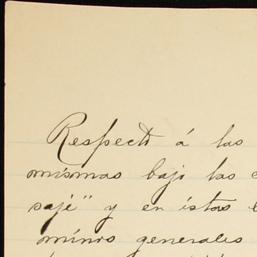 Respecto á las
mismas bajo las
saje" y en éstas
minos generales